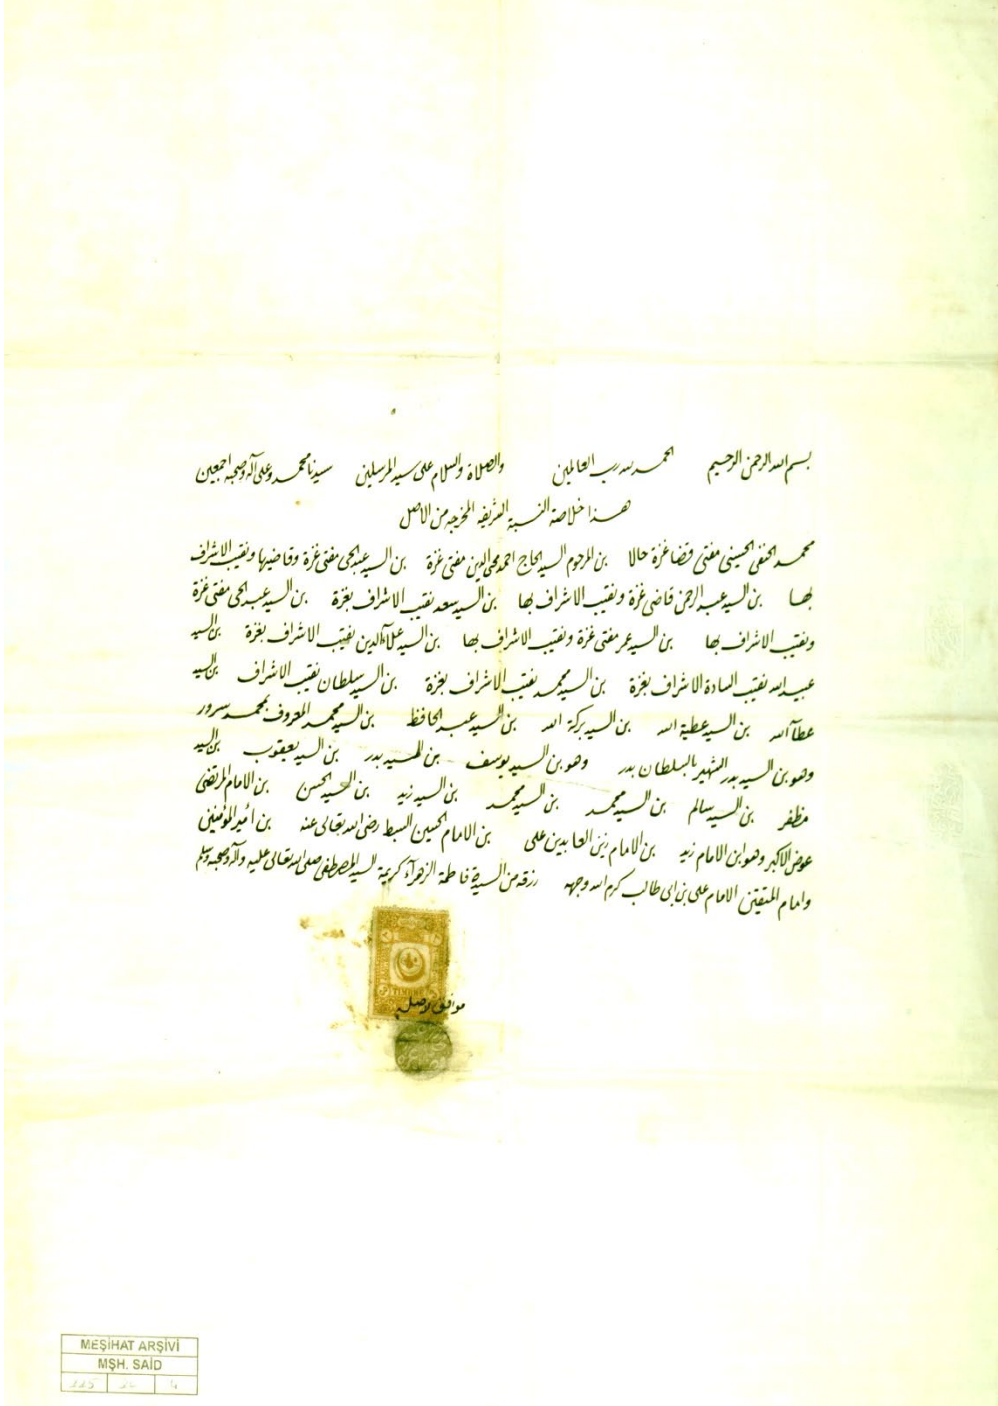 بسم الله الرحمن الرحيم الحمد لله رب العالمين والصلاة والسلام على سيد المرسلين سيدنا محمد وعلى آله وصحبه اجمعين
هذا خلاصة النسبة الشريفه المخرجه من الاصل
محمد الحنفى الحسينى مفتى قضا غزة حالا بن المرحوم السيد الحاج احمد محى الدين مفتى غزة بن السيد عبد الحى مفتى غزة وقاضيها ونقيب الاشراف
بها بن السيد عبد الرحمن قاضى غزة ونقيب الاشراف بها بن السيد سعد نقيب الاشراف بغزة بن السيد عبد الحى مفتى غزة
ونقيب الاشراف بها بن السيد عمر مفتى غزة ونقيب الاشراف بها بن السيد علاء الدين نقيب الاشراف بغزة بن السيد
عبيد الله نقيب السادة الاشراف بغزة بن السيد محمد نقيب الاشراف بغزة بن السيد سلطان نقيب الاشراف بن السيد
عطآ الله بن السيد عطية الله بن السيد بركة الله بن السيد عبد الحافظ بن السيد محمد المعروف بمحمد سرور
وهو بن السيد بدر الشهير بالسلطان بدر وهو بن السيد يوسف بن السيد بدر بن السيد يعقوب بن السيد
مظفر بن السيد سالم بن السيد محمد بن السيد محمد بن السيد زيد بن السيد الحسن بن الامام المرتضى
عوض الاكبر وهو ابن الامام زيد بن الامام زين العابدين على بن الامام الحسين السبط رضى الله تعالى عنه بن امير المؤمنين
وامام المتقين الامام على بن ابى طالب كرم الله وجهه رزقه من السيدة فاطمة الزهرآء كريمة السيد المصطفى صلى الله تعالى عليه وآله وصحبه وسلم
TIMBRE
موافق
MEŞİHAT ARŞİVİ
MŞH. SAİD
225